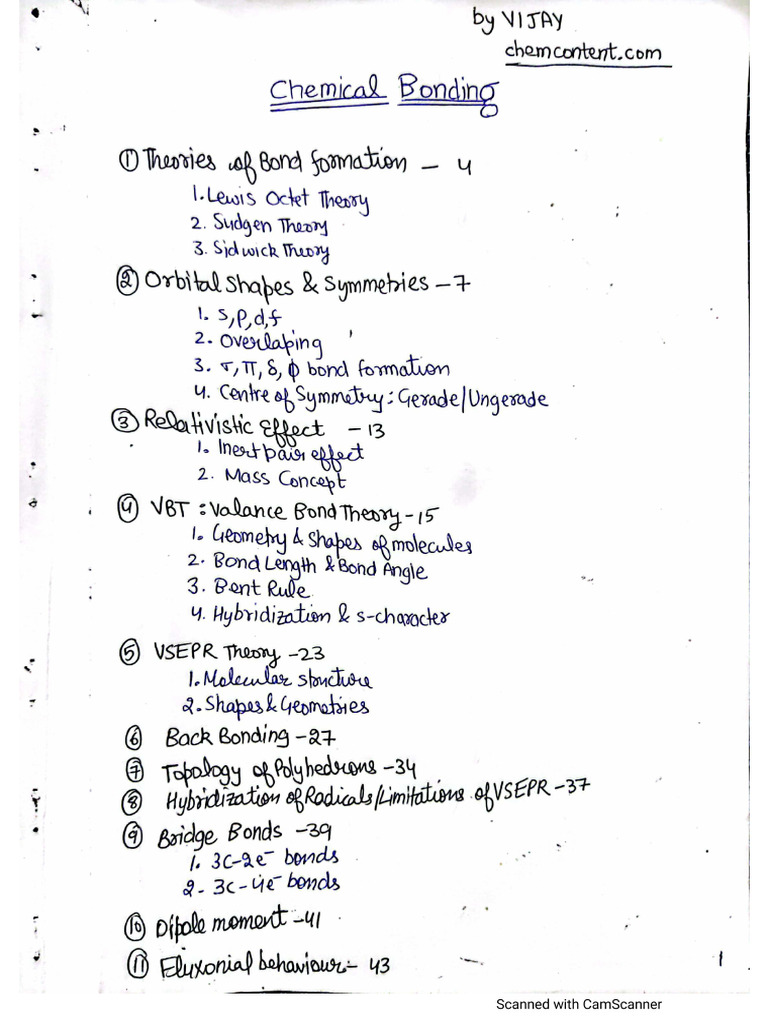 by VIJAY
chemcontent.com
Chemical Bonding
① Theories of Bond formation - 4
1. Lewis Octet Theory
2. Sudgen Theory
3. Sidwick Theory
② Orbital Shapes & Symmetries - 7
1. s,p,d,f
2. Overlaping
3. σ, π, δ, ϕ bond formation
4. Centre of Symmetry: Gerade/Ungerade
③ Relativistic Effect - 13
1. Inert pair effect
2. Mass Concept
④ VBT : Valance Bond Theory - 15
1. Geometry & Shapes of molecules
2. Bond Length & Bond Angle
3. Bent Rule
4. Hybridization & s-character
⑤ VSEPR Theory - 23
1. Molecular structure
2. Shapes & Geometries
⑥ Back Bonding - 27
⑦ Topology of Polyhedrons - 34
⑧ Hybridization of Radicals/Limitations of VSEPR - 37
⑨ Bridge Bonds - 39
1. 3c-2e⁻ bonds
2. 3c-4e⁻ bonds
⑩ Dipole moment - 41
⑪ Fluxonial behaviour - 43
1
Scanned with CamScanner